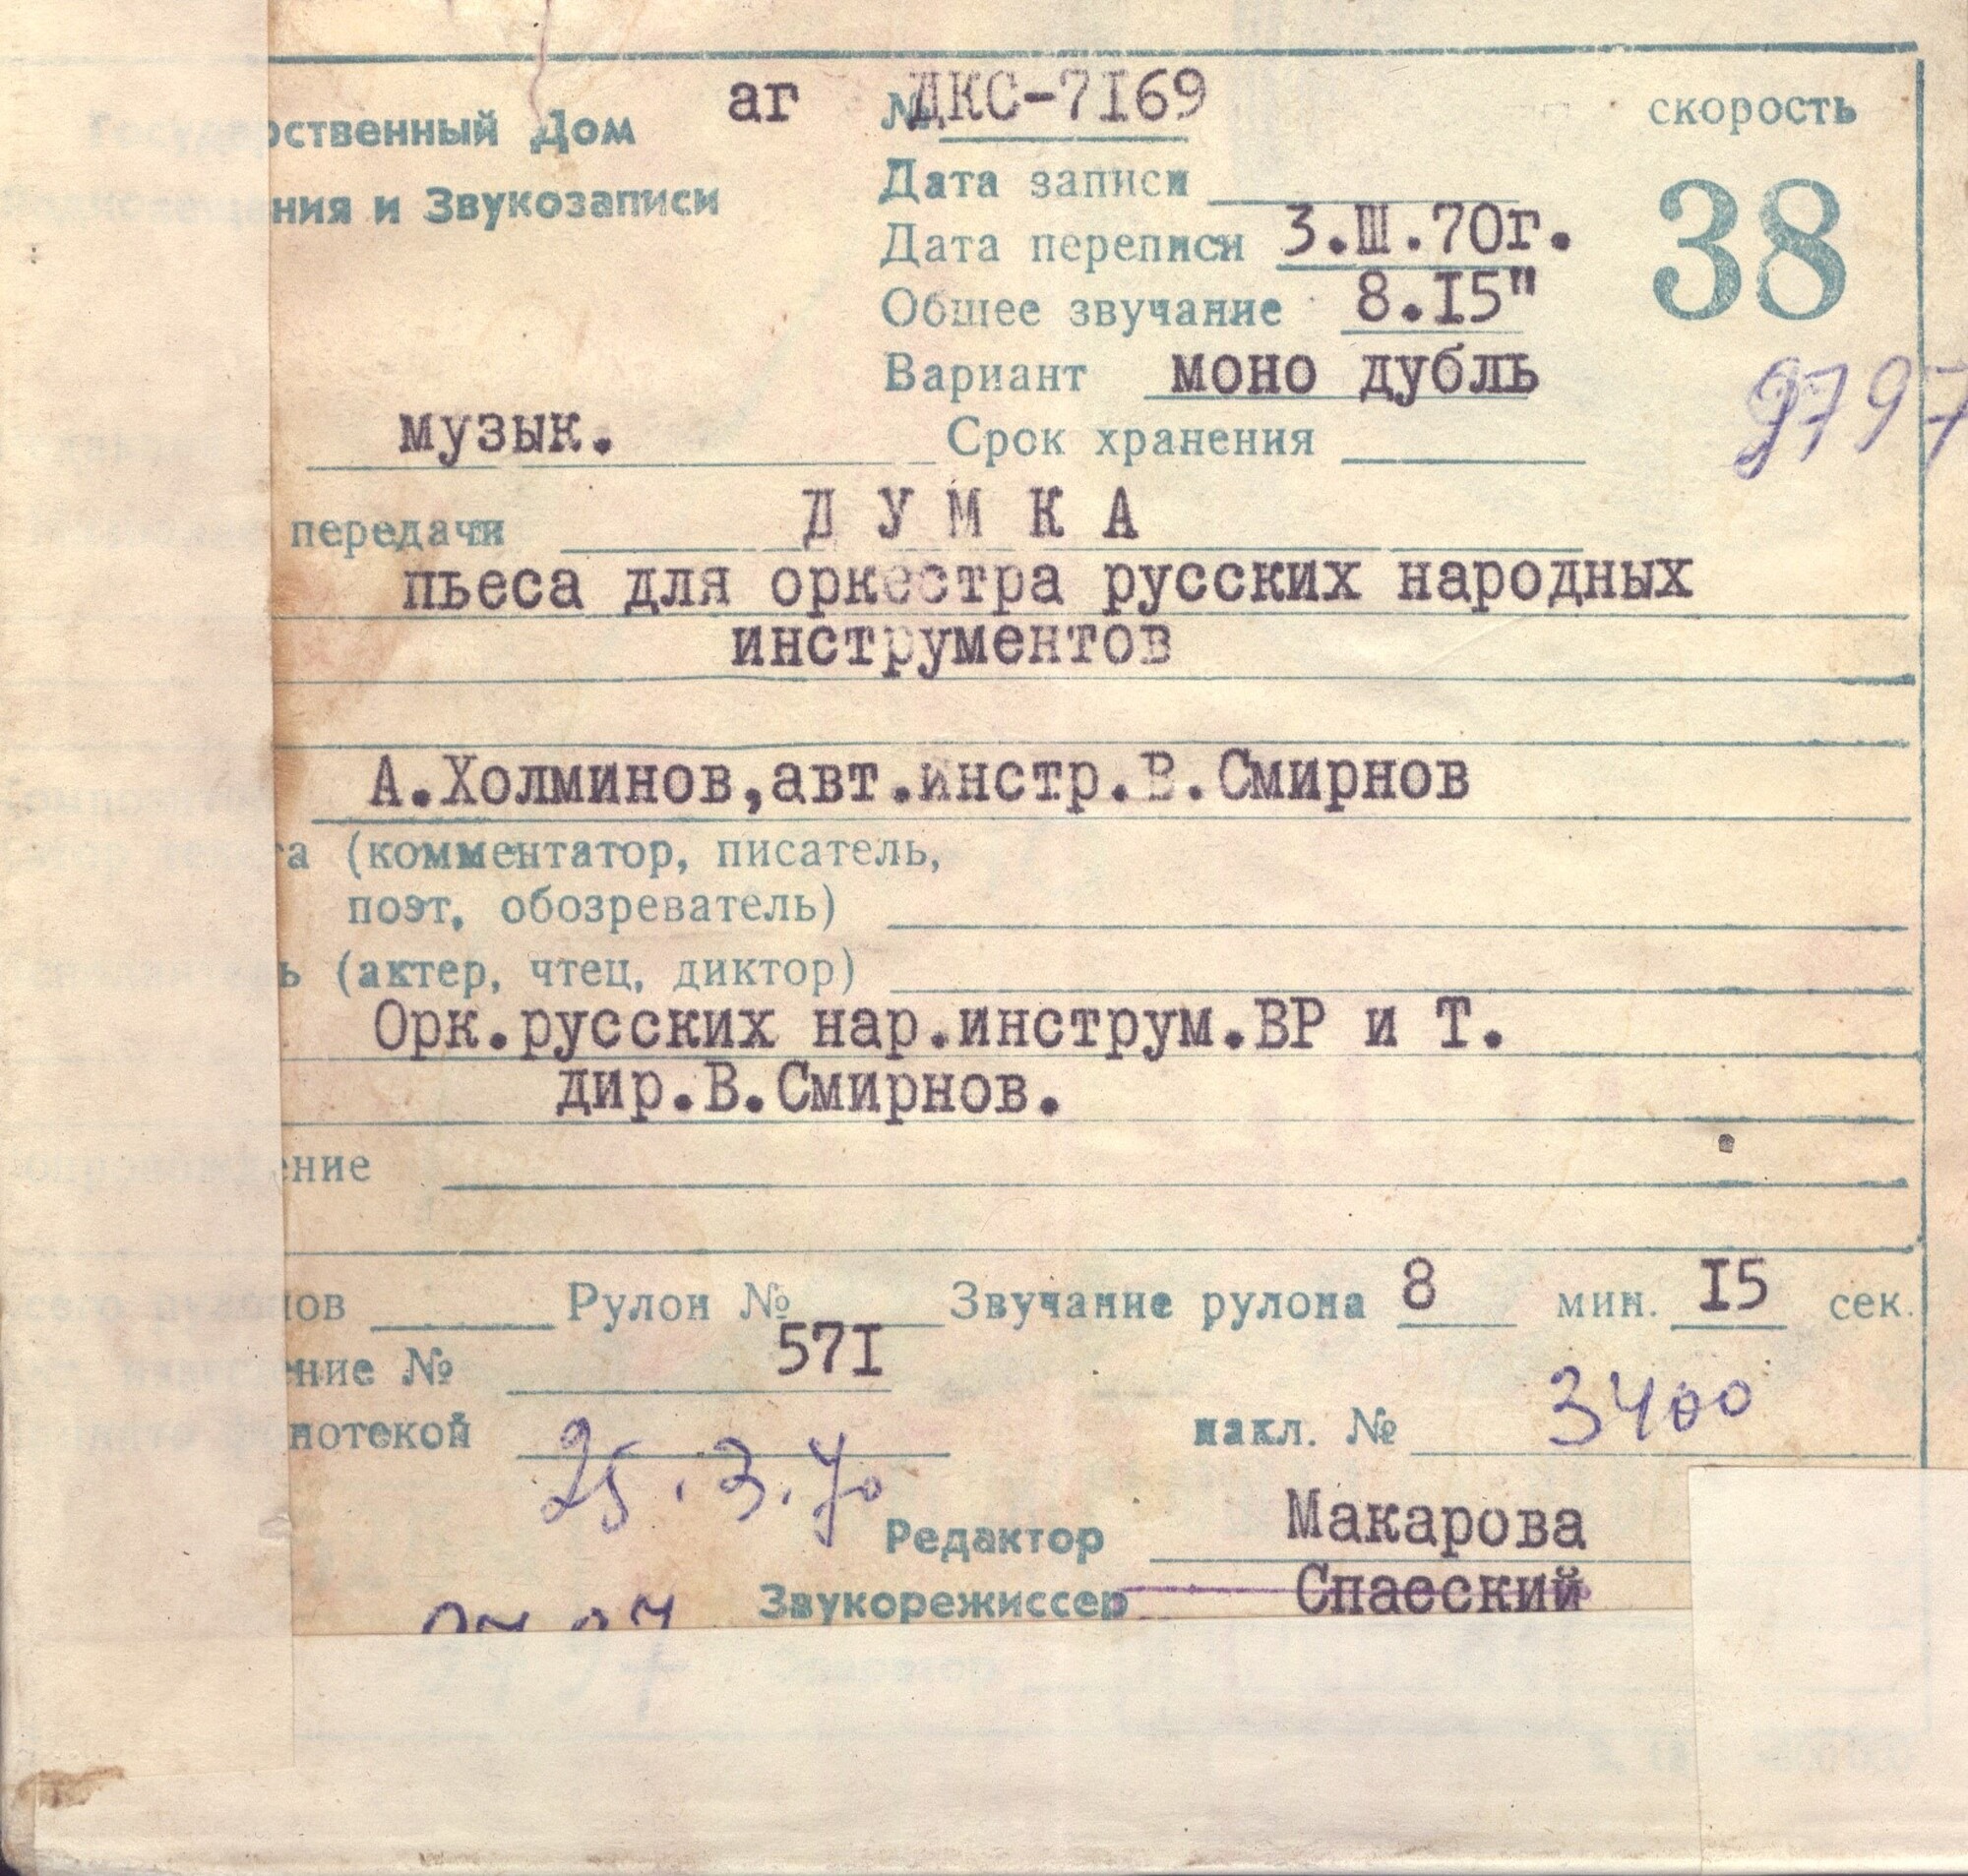 аг № ДКС-7I69 скорость
Государственный Дом
ния и Звукозаписи
Дата записи
38
Дата переписи 3.III.70г.
Общее звучание 8.I5"
Вариант моно дубль
9797
музык. Срок хранения
передачи Д У М К А
пьеса для оркестра русских народных
инструментов
А.Холминов,авт.инстр.В.Смирнов
та (комментатор, писатель,
поэт, обозреватель)
ь (актер, чтец, диктор)
Орк.русских нар.инструм.ВР и Т.
дир.В.Смирнов.
ение
ов Рулон № Звучание рулона 8 мин. I5 сек.
ение № 57I
нотекой 25.3.70 накл. № 3400
Редактор Макарова
Звукорежиссер Спасский